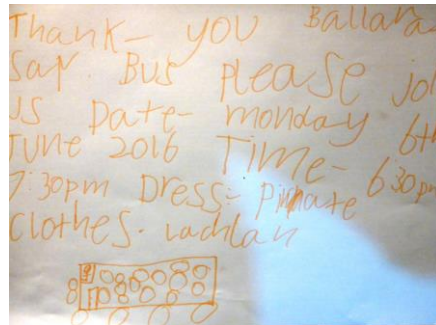 Thank- you Ballara
Say Bus please joi
us Date- monday 6th
June 2016 Time- 6:30pm
7:30pm Dress- Pirate
Clothes. Lachlan